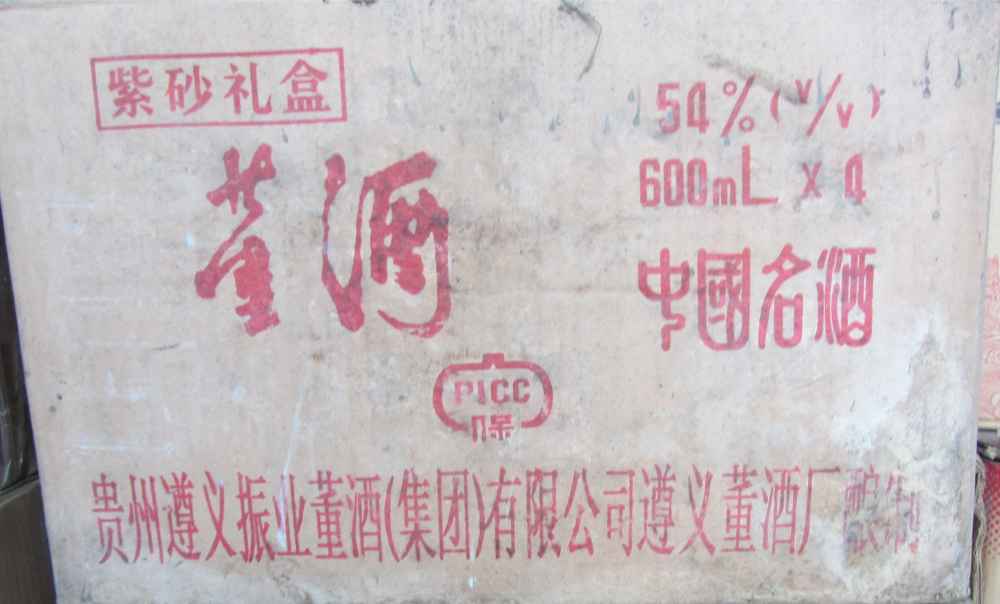 紫砂礼盒
54%(V/V)
董酒
600mL x 4
中國名酒
PICC
保
贵州遵义振业董酒(集团)有限公司遵义董酒厂酿制